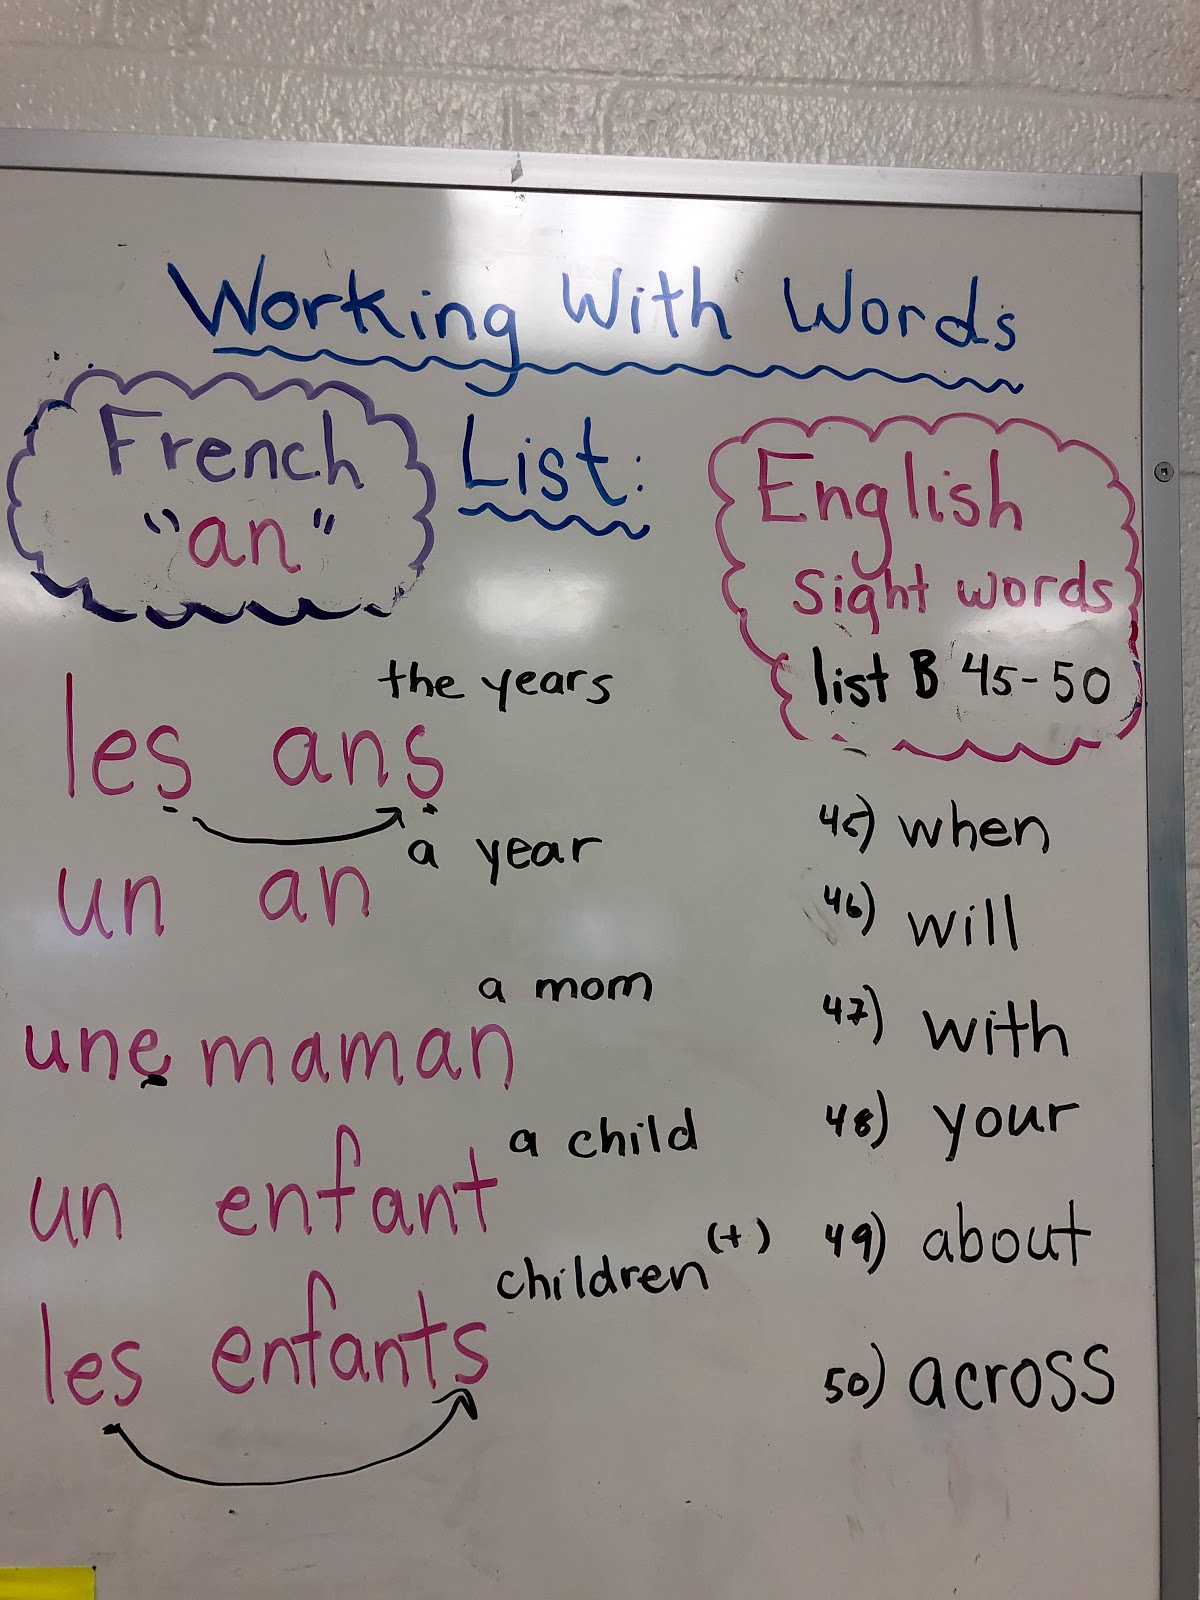 Working With Words
List:
French
"an"
the years
les ans
a year
un an
a mom
une maman
a child
un enfant
children (+)
les enfants
English
sight words
list B 45-50
45) when
46) will
47) with
48) your
49) about
50) across